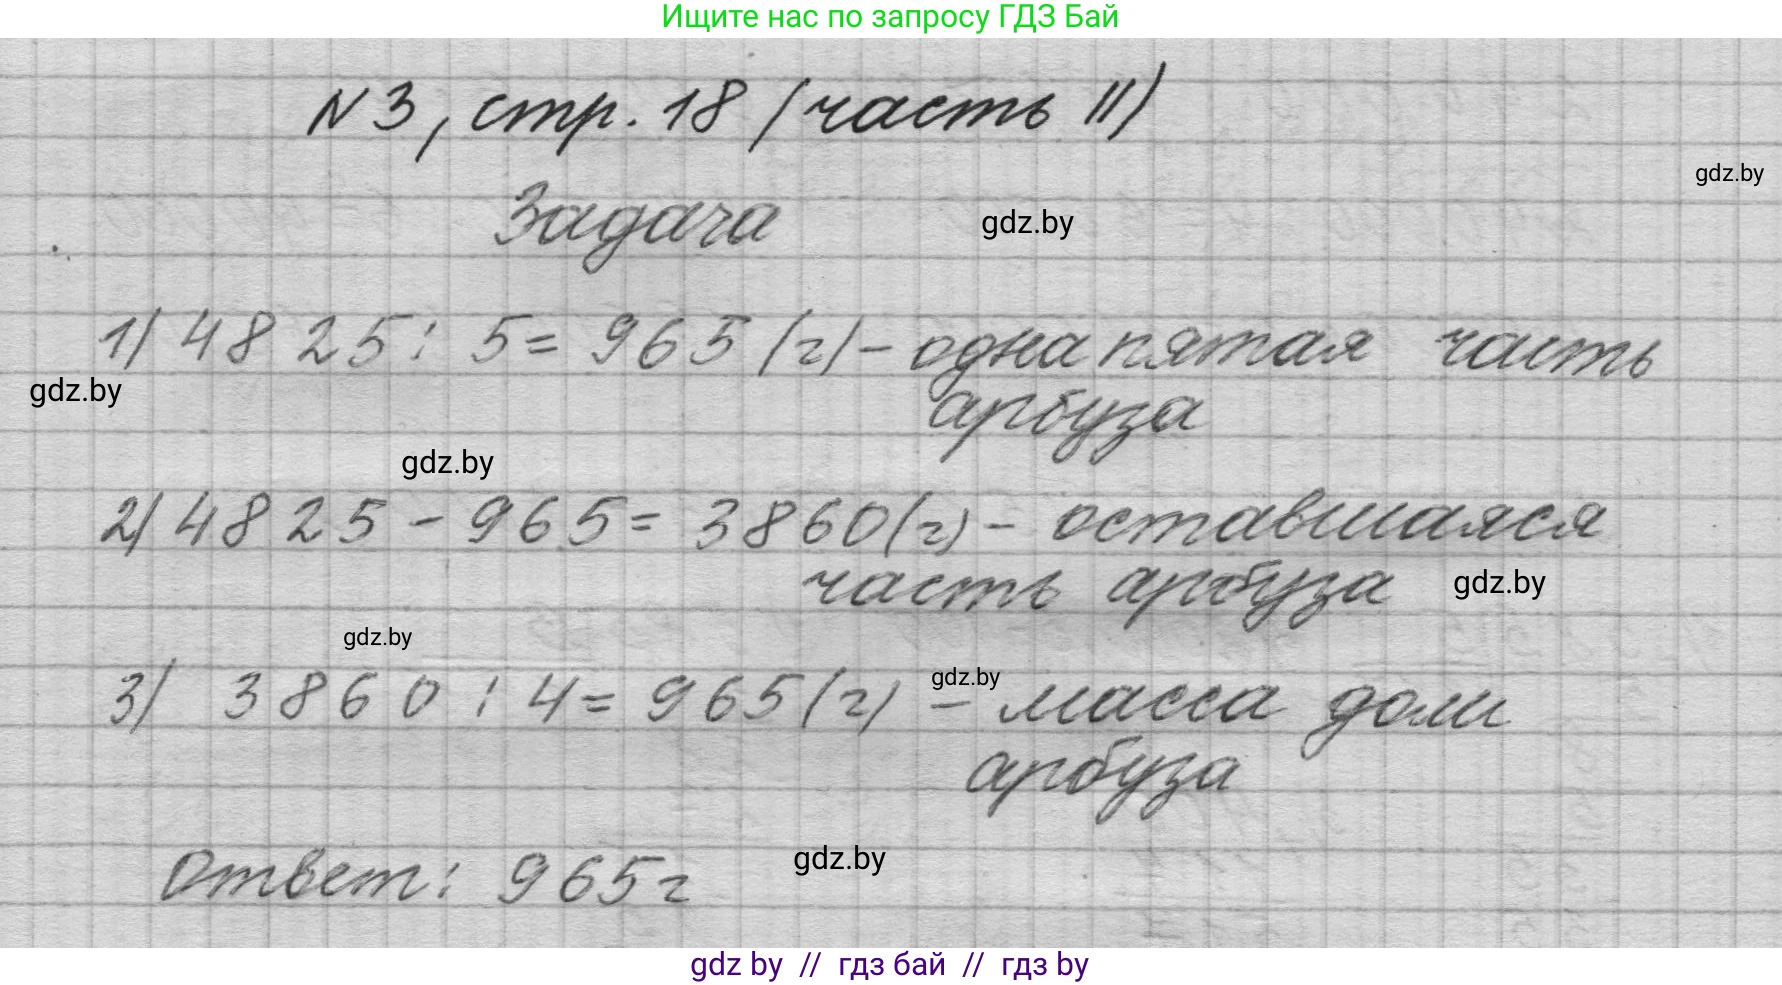 Ищите нас по запросу ГДЗ Бай
N3, стр. 18 (часть II)
gdz.by
Задача
gdz.by
1) 4825 : 5 = 965 (г) – одна пятая часть
gdz.by
арбуза
gdz.by
2) 4825 – 965 = 3860 (г) – оставшаяся
часть арбуза
gdz.by
gdz.by
gdz.by
3) 3860 : 4 = 965 (г) – масса доли
арбуза
Ответ: 965 г
gdz.by
gdz by // гдз бай // гдз by